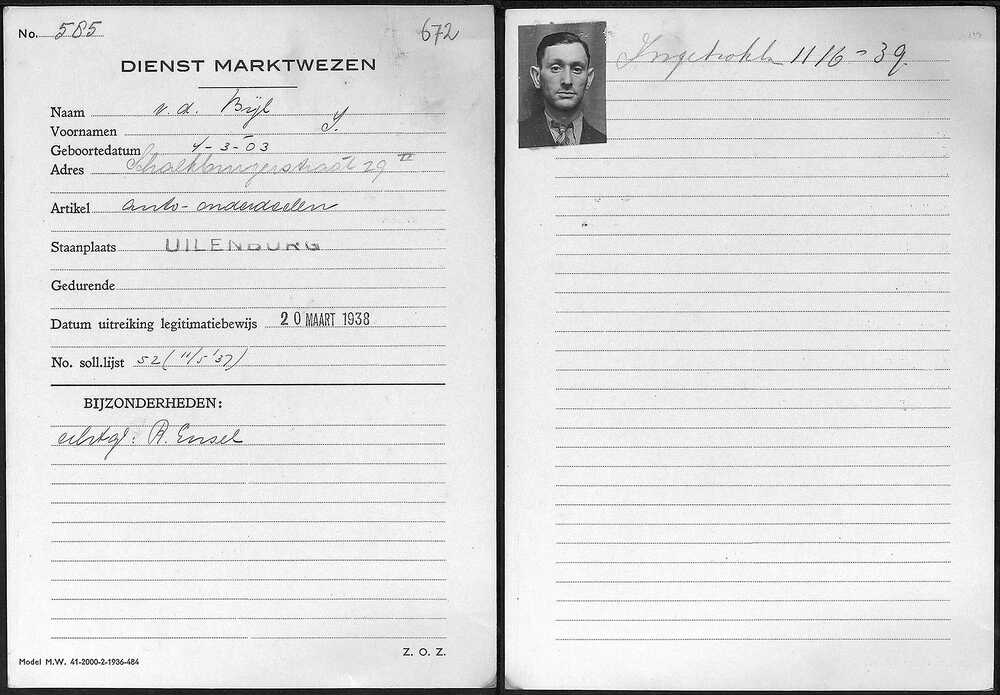 No. 585
672
DIENST MARKTWEZEN
Naam v. d. Bijl
Voornamen S.
Geboortedatum 4-3-03
Adres Schalkburgerstraat 29 II
Artikel auto-onderdeelen
Staanplaats UILENBURG
Gedurende
Datum uitreiking legitimatiebewijs 20 MAART 1938
No. soll.lijst 52 (11/5 '37)
BIJZONDERHEDEN:
echtg: R. Ensel
Z. O. Z.
Model M.W. 41-2000-2-1936-484
Ingetrokken 11/6-39.